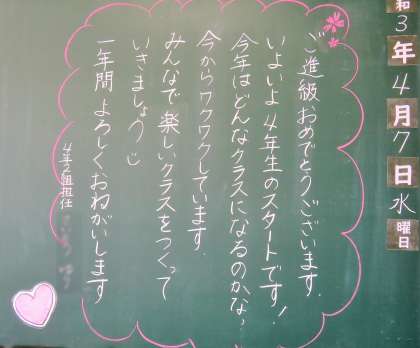 和3年4月7日水曜日
ご進級おめでとうございます.
いよいよ4年生のスタートです!
今年はどんなクラスになるのかな?
今からワクワクしています.
みんなで楽しいクラスをつくって
いきましょう
一年間よろしくおねがいします
4年2組担任